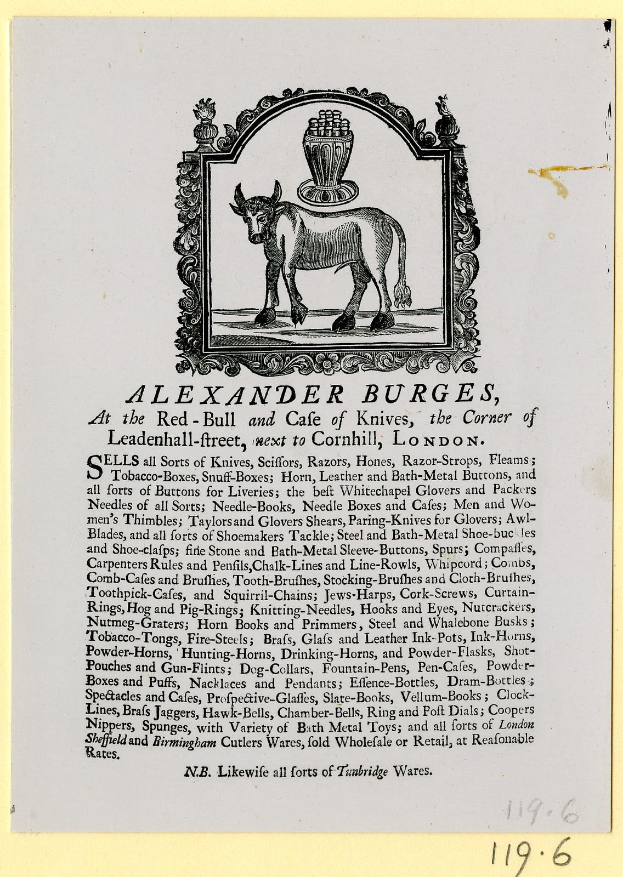 ALEXANDER BURGES,
At the Red-Bull and Caſe of Knives, the Corner of
Leadenhall-ſtreet, next to Cornhill, LONDON.
SELLS all Sorts of Knives, Sciſſors, Razors, Hones, Razor-Strops, Fleams;
Tobacco-Boxes, Snuff-Boxes; Horn, Leather and Bath-Metal Buttons, and
all ſorts of Buttons for Liveries; the beſt Whitechapel Glovers and Packers
Needles of all Sorts; Needle-Books, Needle Boxes and Caſes; Men and Wo-
men's Thimbles; Taylors and Glovers Shears, Paring-Knives for Glovers; Awl-
Blades, and all ſorts of Shoemakers Tackle; Steel and Bath-Metal Shoe-buckles
and Shoe-claſps; fine Stone and Bath-Metal Sleeve-Buttons, Spurs; Compaſſes,
Carpenters Rules and Penſils, Chalk-Lines and Line-Rowls, Whipcord; Combs,
Comb-Caſes and Bruſhes, Tooth-Bruſhes, Stocking-Bruſhes and Cloth-Bruſhes,
Toothpick-Caſes, and Squirril-Chains; Jews-Harps, Cork-Screws, Curtain-
Rings, Hog and Pig-Rings; Knitting-Needles, Hooks and Eyes, Nutcrackers,
Nutmeg-Graters; Horn Books and Primmers, Steel and Whalebone Busks;
Tobacco-Tongs, Fire-Steels; Braſs, Glaſs and Leather Ink-Pots, Ink-Horns,
Powder-Horns, Hunting-Horns, Drinking-Horns, and Powder-Flasks, Shot-
Pouches and Gun-Flints; Dog-Collars, Fountain-Pens, Pen-Caſes, Powder-
Boxes and Puffs, Nacklaces and Pendants; Eſſence-Bottles, Dram-Bottles;
Spectacles and Caſes, Proſpective-Glaſſes, Slate-Books, Vellum-Books; Clock-
Lines, Braſs Jaggers, Hawk-Bells, Chamber-Bells, Ring and Poſt Dials; Coopers
Nippers, Spunges, with Variety of Bath Metal Toys; and all ſorts of London
Sheffield and Birmingham Cutlers Wares, ſold Wholeſale or Retail, at Reaſonable
Rates.
N.B. Likewiſe all ſorts of Tunbridge Wares.
119.6
119.6